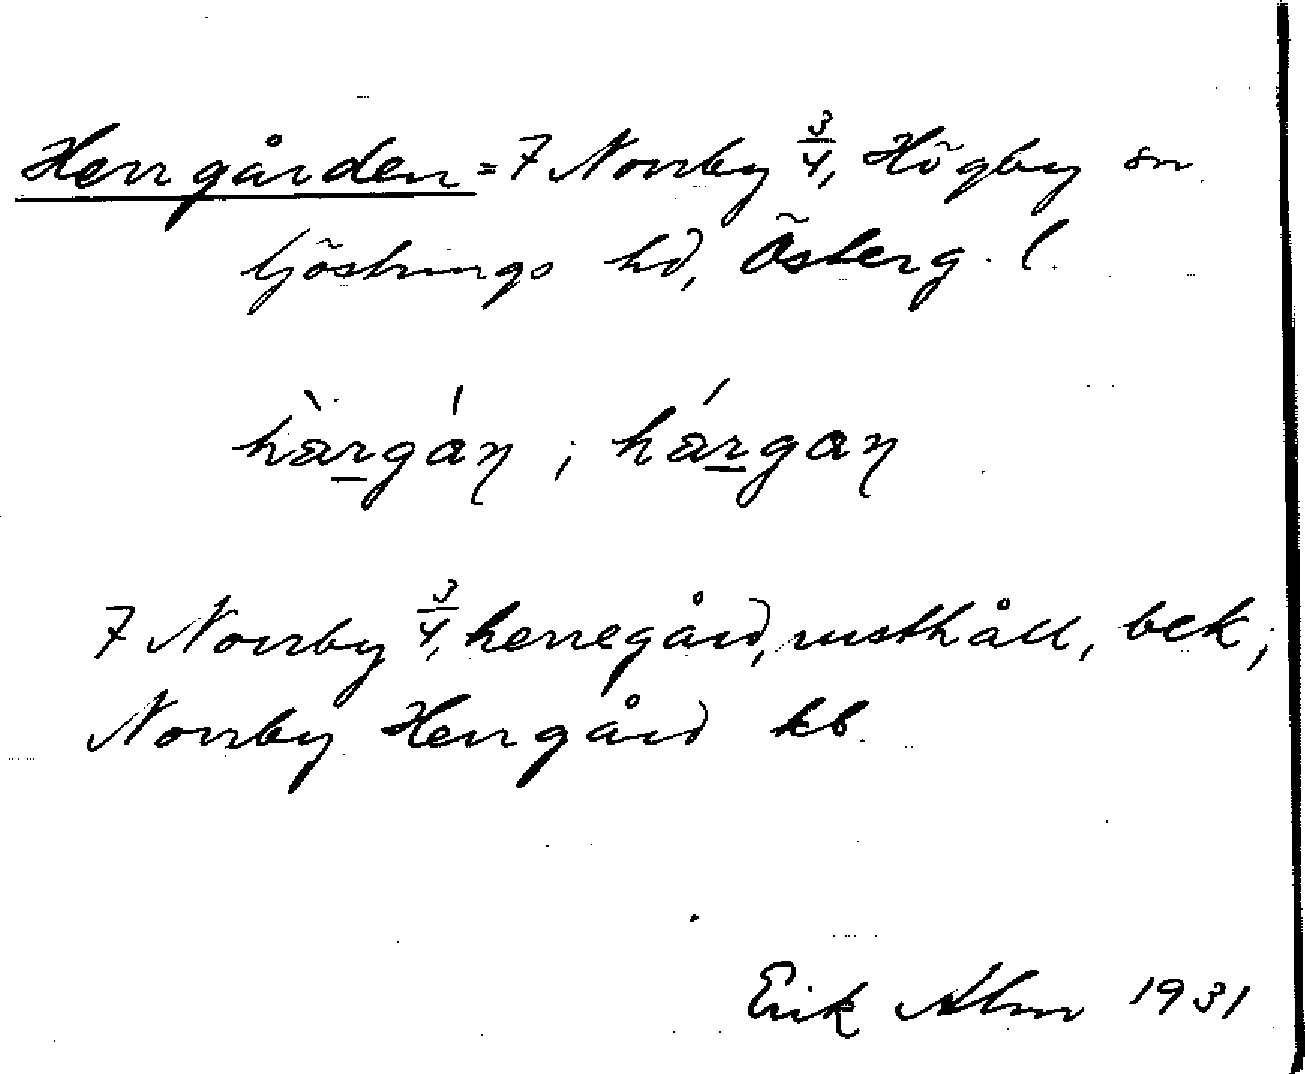 Herrgården = 7 Norrby 3/4, Högby sn
Göstrings hd, Österg. l.
hàrgán ; hárgan
7 Norrby 3/4, herregård, rusthåll, bek,
Norrby Herrgård kb.
Erik Alm 1931